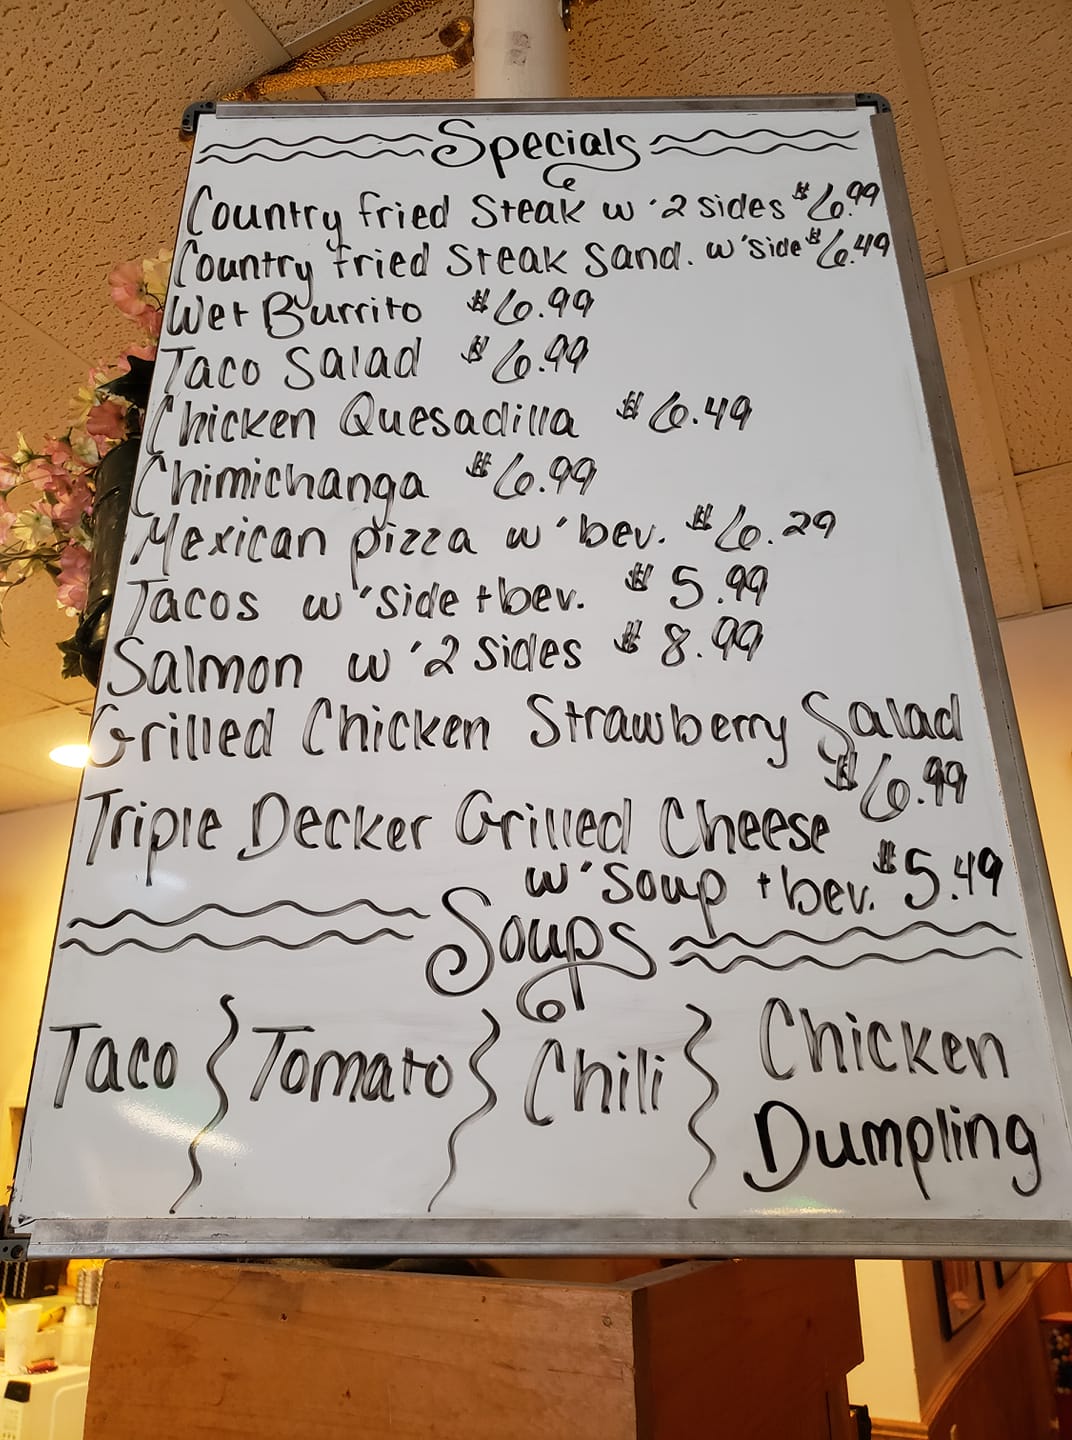 Specials
Country fried Steak w' 2 sides $6.99
Country fried Steak Sand. w' side $6.49
Wet Burrito $6.99
Taco Salad $6.99
Chicken Quesadilla $6.49
Chimichanga $6.99
Mexican pizza w' bev. $6.29
Tacos w' side + bev. $5.99
Salmon w' 2 sides $8.99
Grilled Chicken Strawberry Salad
$6.99
Triple Decker Grilled Cheese
w' Soup + bev. $5.49
Soups
Taco Tomato Chili Chicken
Dumpling